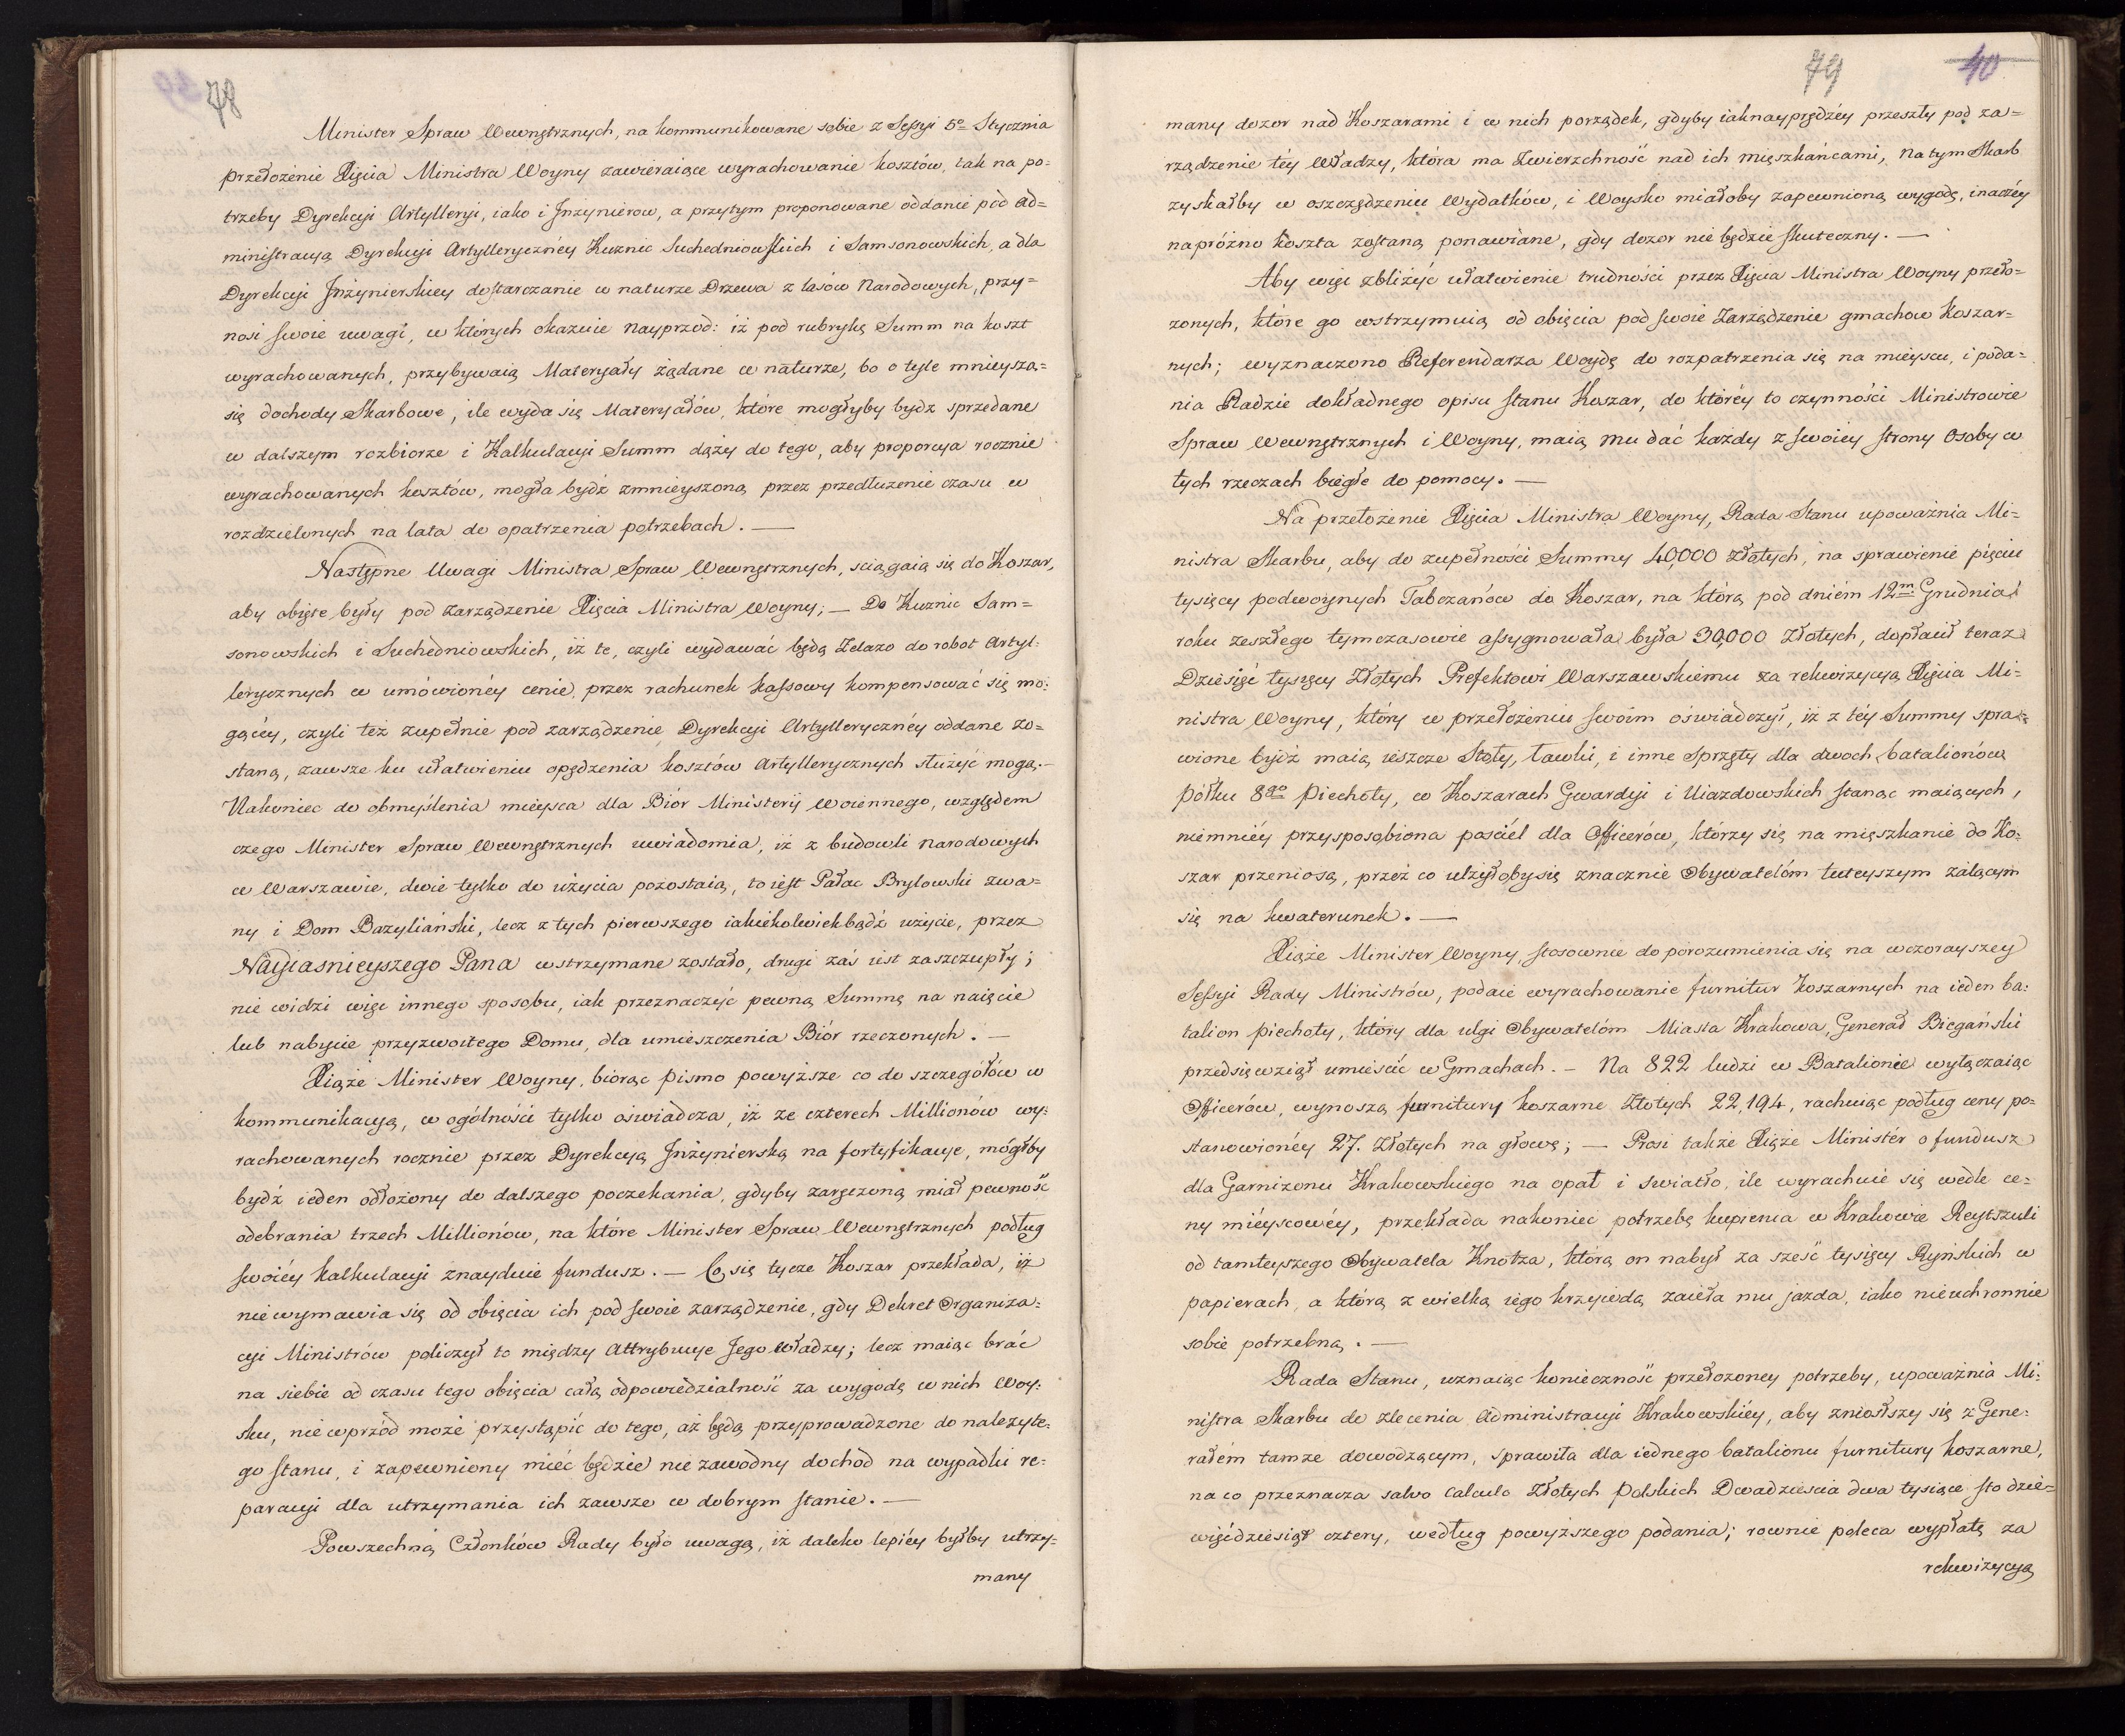 78
Minister Spraw Wewnętrznych, na kommunikowane sobie z Sessyi 5º Stycznia
przełożenie Xięcia Ministra Woyny zawieraiące wyrachowanie kosztów, tak na po=
trzeby Dyrekcyi Artylleryi, iako i Inżynierow, a przytym proponowane oddanie pod Ad=
ministracyą Dyrekcyi Artylleryczney Kuznic Suchedniowskich i Samsonowskich, a dla
Dyrekcyi Inżynierskiey dostarczanie w naturze Drzewa z lasów Narodowych, przy=
nosi swoie uwagi, w których okazuie nayprzod: iż pod rubryką Summ na koszt
wyrachowanych, przybywaią Materyały żądane w naturze, bo o tyle mnieyszą=
się dochody Skarbowe, ile wyda się Materyałów, które mogłyby bydz sprzedane
w dalszym rozbiorze i Kalkulacyi Summ dąży do tego, aby proporcya rocznie
wyrachowanych kosztów, mogła bydź zmnieyszoną przez przedłużenie czasu w
rozdzielonych na lata do opatrzenia potrzebach. —
Następne Uwagi Ministra Spraw Wewnętrznych, sciągaią się do Koszar,
aby obięte były pod zarządzenie Xięcia Ministra Woyny; — Do Kuznic Sam=
sonowskich i Suchedniowskich, iż te, czyli wydawać będą Żelazo do robot Artyl=
lerycznych w umówionéy cenie, przez rachunek kassowy kompensować się mo=
gącéy, czyli też zupełnie pod zarządzenie Dyrekcyi Artyllerycznéy oddane zo=
staną, zawsze ku ułatwieniu opędzenia kosztów Artyllerycznych służyć mogą. —
Nakoniec do obmyślenia mieysca dla Biór Ministerij Woiennego, względem
czego Minister Spraw Wewnętrznych uwiadomia, iż z budowli narodowych
w Warszawie, dwie tylko do użycia pozostaią, to iest Pałac Brylowski zwa=
ny i Dom Bazyliański, lecz z tych pierwszego iakiekolwiekbądź użycie, przez
Nayiasnieyszego Pana wstrzymane zostało, drugi zaś iest zaszczupły;
nie widzi więc innego sposobu, iak przeznaczyć pewną Summę na naięcie
lub nabycie przyzwoitego Domu, dla umieszczenia Biór rzeczonych. —
Xiąże Minister Woyny, biorąc pismo powyższe co do szczegółów w
kommunikacyą, w ogólności tylko oświadcza, iż ze czterech Millionów wy=
rachowanych rocznie przez Dyrekcyą Inżynierską na fortyfikacye, mógłby
bydź ieden odłożony do dalszego poczekania, gdyby zaręczoną miał pewność
odebrania trzech Millionów, na które Minister Spraw Wewnętrznych podług
swoiéy kalkulacyi znayduie fundusz. — Co się tycze Koszar przekłada, iż
nie wymawia się od obięcia ich pod swoie zarządzenie, gdy Dekret Organiza=
cyi Ministrów policzył to między Attrybucye Jego władzy; lecz maiąc brać
na siebie od czasu tego obięcia całą odpowiedzialność za wygodę w nich Woy=
sku, nie wprzód może przystąpić do tego, aż będą przyprowadzone do należyte=
go stanu, i zapewniony mieć będzie niezawodny dochod na wypadki re=
paracyi dla utrzymania ich zawsze w dobrym stanie. —
Powszechną Członków Rady było uwagą, iż daleko lepiéy byłby utrzy=
many
79
40
many dozor nad Koszarami i w nich porządek, gdyby iaknayprędzéy przeszły pod za=
rządzenie téy Władzy, która ma Zwierzchność nad ich mięszkańcami, na tym Skarb
zyskałby w oszczędzeniu Wydatków, i Woysko miałoby zapewnioną wygodę, inaczéy
napróżno koszta zostaną ponawiane, gdy dozor nie będzie skuteczny. —
Aby więc zbliżyć ułatwienie trudności przez Xięcia Ministra Woyny przeło=
żonych, które go wstrzymuią od obięcia pod swoie Zarządzenie gmachow Koszar=
nych; wyznaczono Referendarza Woydę do rozpatrzenia się na mieyscu, i poda=
nia Radzie dokładnego opisu stanu Koszar, do któréy to czynności Ministrowie
Spraw Wewnętrznych i Woyny, maią mu dać każdy z swoiéy strony Osoby w
tych rzeczach biegłe do pomocy. —
Na przełożenie Xięcia Ministra Woyny, Rada Stanu upoważnia Mi=
nistra Skarbu, aby do zupełności Summy 40,000 złotych, na sprawienie pięciu
tysięcy podwoynych Tabczanów do Koszar, na którą pod dniém 12m Grudnia
roku zeszłego tymczasowie assygnowała była 30,000 Złotych, dopłacił teraz
Dziesięć tysięcy Złotych Prefektowi Warszawskiemu za rekwizycyą Xięcia Mi=
nistra Woyny, który w przełożeniu swoim oświadczył, iż z téy Summy spra=
wione bydź maią ieszcze Stoły, Ławki, i inne Sprzęty dla dwoch batalionów
półku 8go Piechoty, w Koszarach Gwardyi i Uiazdowskich stanąc maiących,
niemniéy przysposobiona pościel dla Officerów, którzy się na mięszkanie do Ko=
szar przeniosą, przez co ulżyłoby się znacznie Obywatelóm tuteyszym żalącym
się na kwaterunek. —
Xiąże Minister Woyny, stosownie do porozumienia się na wczorayszey
Sessyi Rady Ministrów, podaie wyrachowanie furnitur koszarnych na ieden ba=
talion piechoty, który dla ulgi Obywatelóm Miasta Krakowa, Generał Biegański
przedsięwziął umieścić w Gmachach. — Na 822 ludzi w Batalionie wyłączaiąc
Officerów, wynoszą furnitury koszarne Złotych 22,194, rachuiąc podług ceny po=
stanowionéy 27. Złotych na głowę; — Prosi także Xiąże Ministér o fundusz
dla Garnizonu Krakowskiego na opał i swiatło, ile wyrachuie się wedle ce=
ny miéyscowéy, przekłada nakoniec potrzebę kupienia w Krakowie Reytszuli
od tamteyszego Obywatela Knotza, którą on nabył za sześć tysięcy Ryńskich w
papierach, a którą z wielką iego krzywdą zaięła mu jazda, iako nieuchronnie
sobie potrzebną. —
Rada Stanu, uznaiąc konieczność przełożoney potrzeby, upoważnia Mi=
nistra Skarbu do zlecenia Administracyi Krakowskiéy, aby zniosłszy się z Gene=
rałém tamże dowodzącym, sprawiła dla iednego batalionu furnitury koszarne,
na co przeznacza salvo calculo Złotych Polskich Dwadzieścia dwa tysiące sto dzie=
więćdziesiąt cztery, według powyższego podania; rownie poleca wypłatę za
rekwizycyą